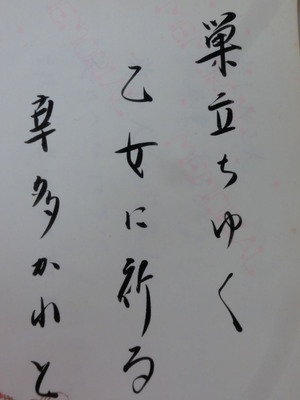 巣立ちゆく
乙女に祈る
幸多かれと